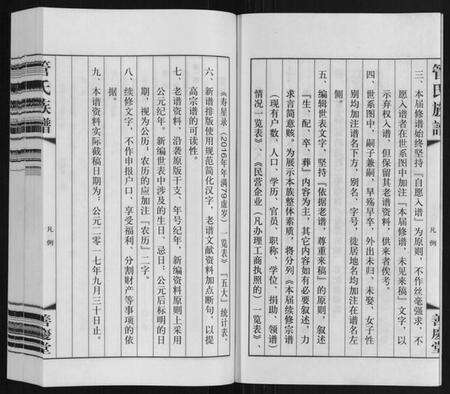 管氏族譜
凡例
善慶堂
三、本届修谱始终坚持『自愿入谱』为原则，不作丝毫强求，不
愿入谱者在世系图中加注『本届修谱，未见来稿』文字，以
示弃权入谱，但保留其老谱资料，供来者俟考。
四、世系图中，嗣子兼嗣，早殇早卒，外出未归，未娶，女子性
别均加注谱名下方，别名，字号，徙居地名均加注在谱名左
侧。
五、编辑世表文字，坚持『依据老谱，尊重来稿』的原则，叙述
『生，配，卒，葬』内容为主，其它内容如有必要叙述，力
求言简意赅，为展示本族整体素质，将分列《本届续修宗谱
（现有户数、人口、学历、官员、职称、学位、捐助、领谱）
情况一览表》、《民营企业（凡办理工商执照的）一览表》、
《寿星录（2016年满79虚岁）一览表》、『五大』统计表。
六、新谱排版使用规范简化汉字，老谱文献资料加点断句，以提
高宗谱的可读性。
七、老谱资料，沿袭原版干支，年号纪年，新编资料原则上采用
公元纪年。新编世表中涉及的生日、忌日，公元后标明的日
期，视为公历，农历的应加注『农历』二字。
八、续修文字，不作申报户口，享受福利、分割财产等事项的依
据。
九、本谱资料实际截稿日期为：公元二〇一七年九月三十日止。
管氏族譜
凡例
善慶堂